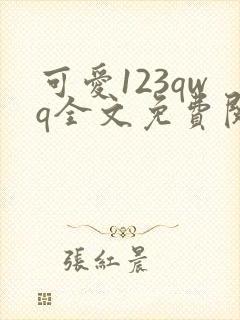 可愛123qw
q全文免費
張紅晨